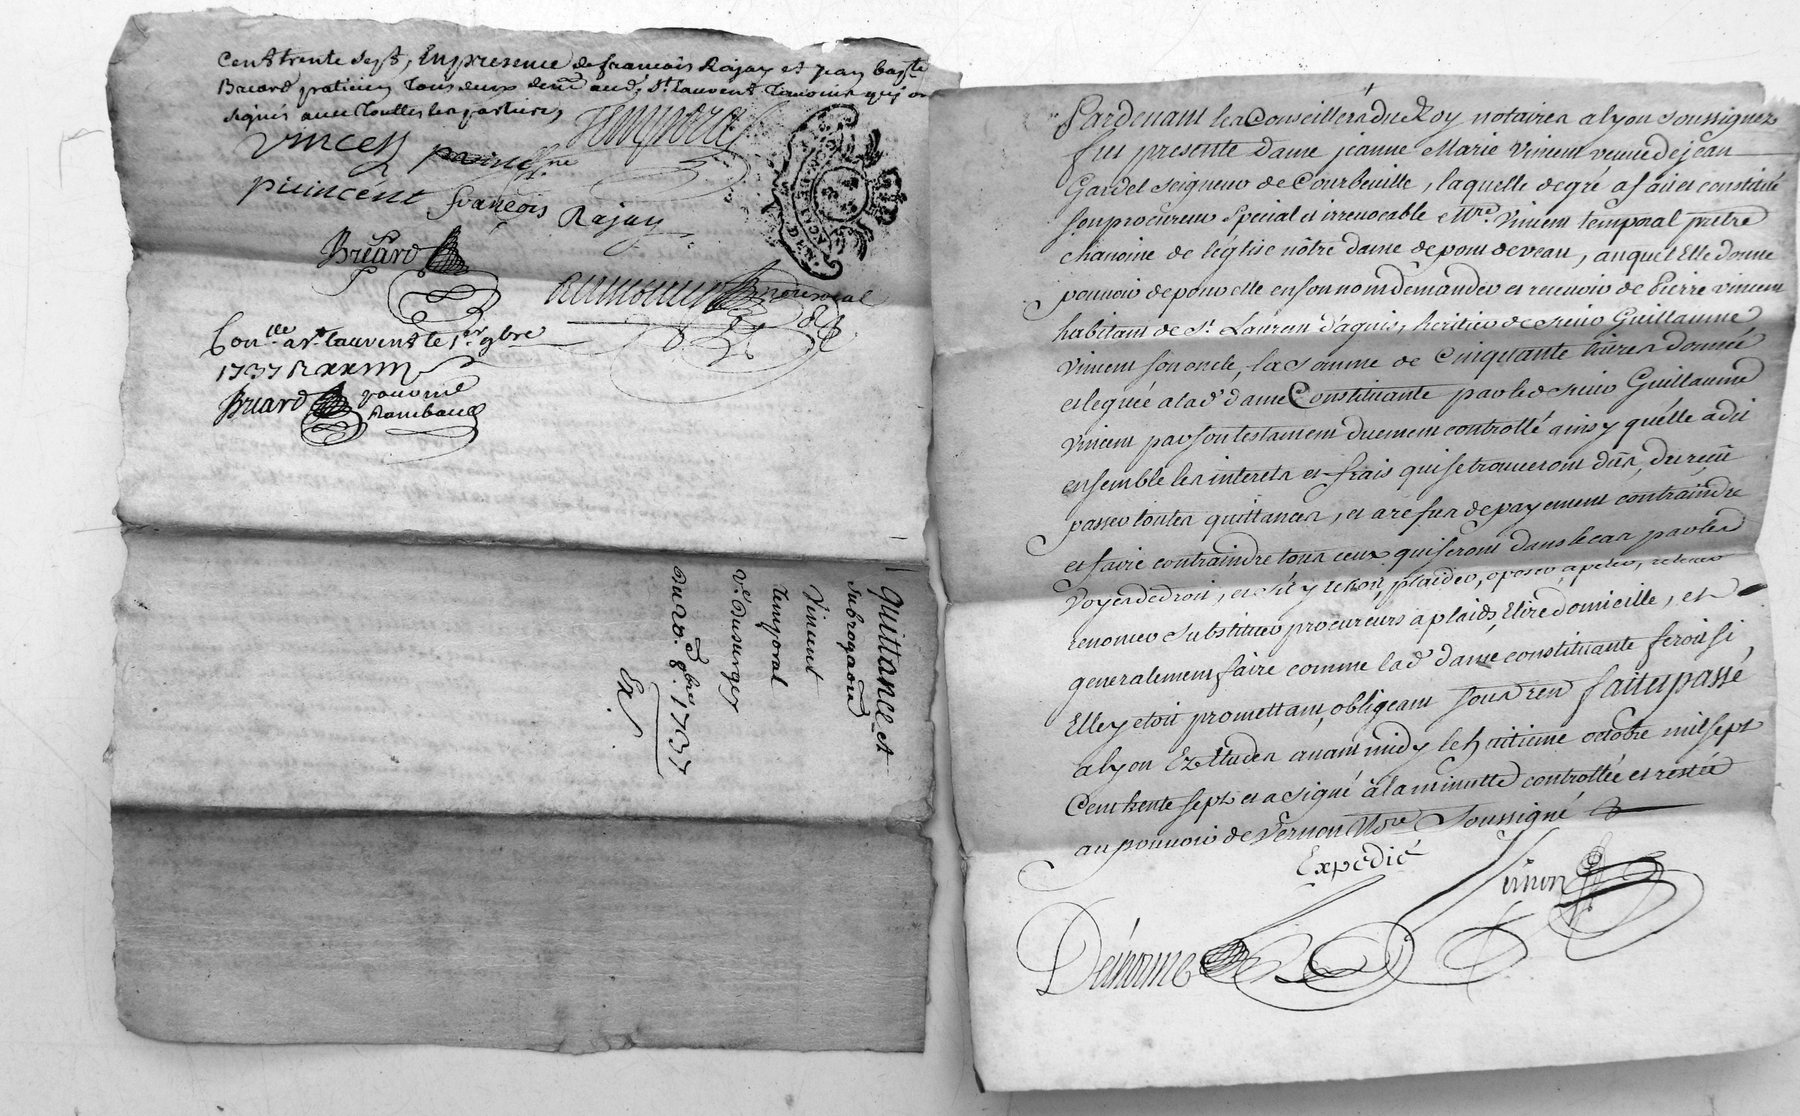 Cent trente sept, En presence de francois Rajay et Jean bap.te
Bruard praticien tous deux dem.t aud. St. Laurent temoins qui on
signés avec toutes les parties
Temporal
Vincent
pvincent françois Rajay
Bruard
Con.lle a St. Laurent le 1.er 9bre
1737 R
Bruard
Rambaud
Quittance et
subrogaõn
Vincent
Temporal
V.e Dusurgey
Du 20.e 8.bre 1737
Ex.
Pardevant les Conseillers du Roy notaires a lyon soussignez
fut presente Dame jeanne Marie Vincent veuve de jean
Gardel seigneur de Courbeville, laquelle de gré a fait et constitué
son procureur special et irrevocable M.re Vincent temporal prêtre
chanoine de l'eglise nôtre dame de pont de veau, auquel Elle donne
pouvoir de pour elle en son nom demander et recevoir de Pierre vincent
habitant de St. Laurent d'agnis, heritier de sieur Guillaume
Vincent son oncle, la somme de Cinquante livres donnée
et leguée a lad.e dame Constituante par led. sieur Guillaume
Vincent par son testament duement controllé ainsy qu'elle a dit
ensemble les interets et frais qui se trouveront dûs, du reçu
passer toutes quittances, et a refus de payement contraindre
et faire contraindre tous ceux qui seront dans le cas par les
voyes de droit, et s'il y echoit, plaider, oposer, apeler,
renoncer substituer procureurs a plaids, Elire domicille, et
generalement faire comme lad.e dame constituante feroit si
Elle y etoit promettant, obligeant fait et passé
a lyon Ez Etudes avant midy le huitieme octobre mil sept
Cent trente sept et a signé a la minutte controllée et restée
au pouvoir de Vernon N.re Soussigné
Expedié
Vernon